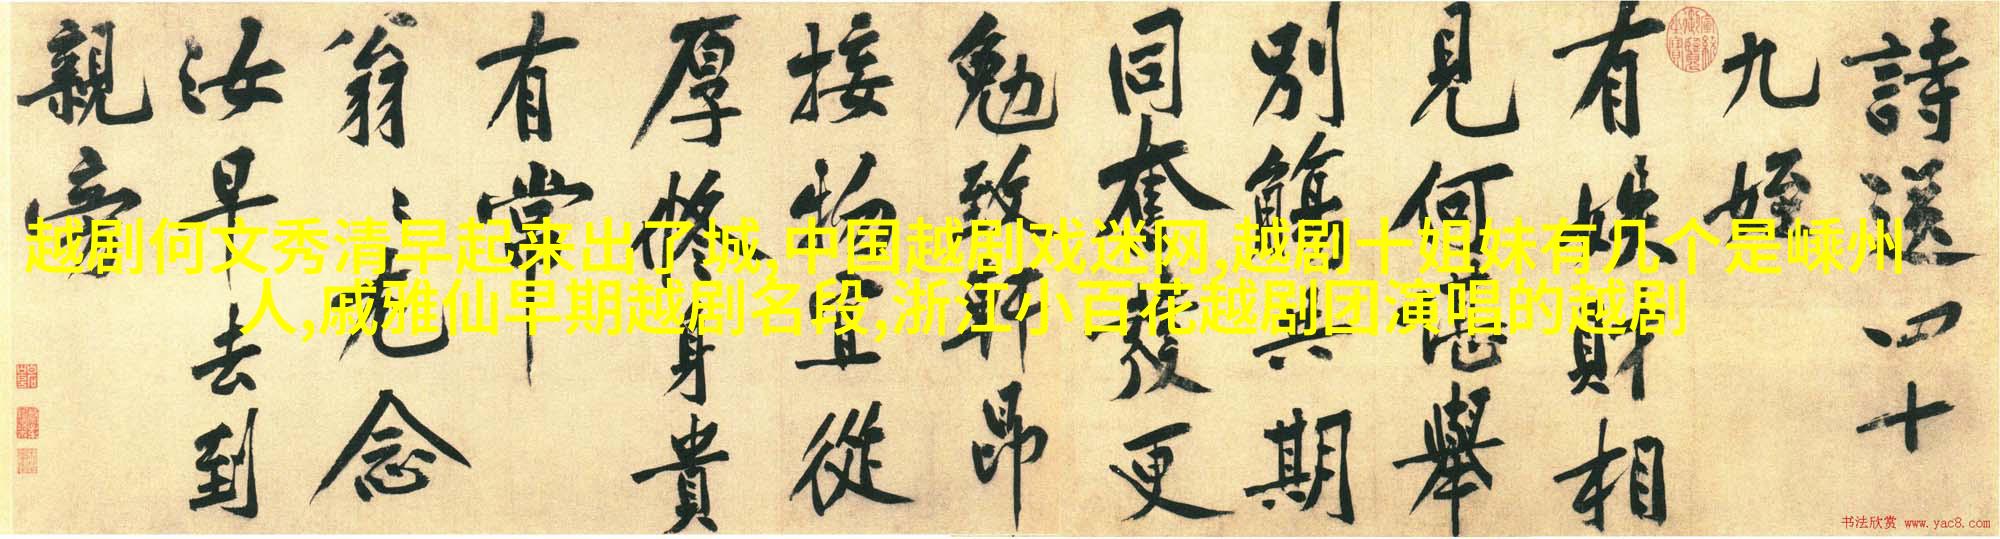 越剧何文秀清早起来出了城,中国越剧戏迷网,越剧十姐妹有几个是嵊州
人,戚雅仙早期越剧名段,浙江小百花越剧团演唱的越剧
詩送四十
九姪
有姪財相
見何堪舉
別觴共期
同奮發更
勉致軒昂
接物宜從
厚修身貴
有常
翁〻尤念
汝早去到
親旁
书法欣赏 www.yac8.com